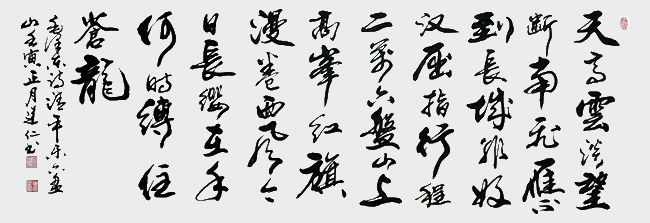 天高雲淡望
斷南飛雁不
到長城非好
漢屈指行程
二萬六盤山上
高峯紅旗
漫卷西風今
日長纓在手
何時縛住
蒼龍
毛澤東詩清平樂六盤
山壬寅正月仁書